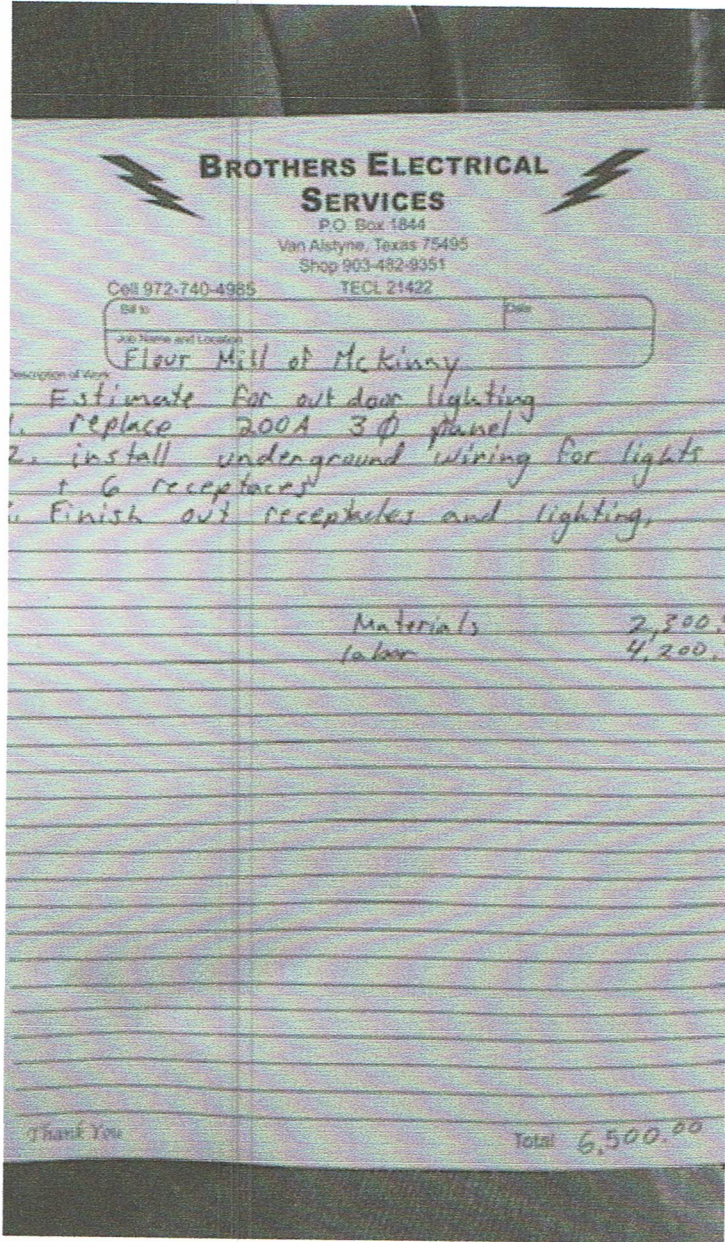 BROTHERS ELECTRICAL
SERVICES
P.O. Box 1844
Van Alstyne, Texas 75495
Shop 903-482-9351
Cell 972-740-4985 TECL 21422
Bill to Date
Job Name and Location
Flour Mill of McKinny
Description of Work
Estimate for out door lighting
1. replace 200A 3 Ø panel
2. install underground wiring for lights
+ 6 receptaces
. Finish out receptacles and lighting,
Materials 2,300.
labor 4,200.
Thank You Total 6,500.00